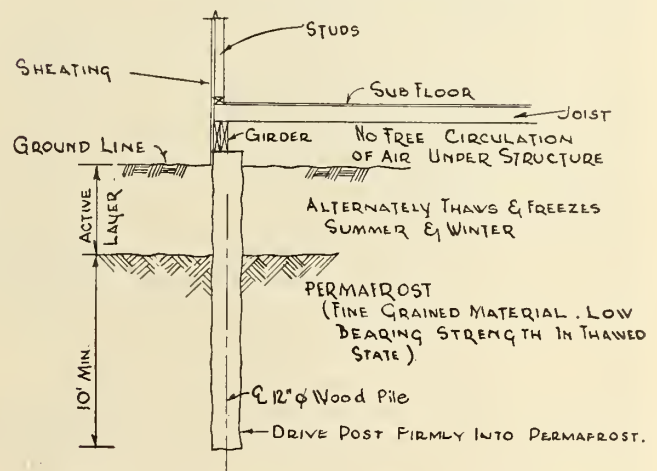 STUDS
SHEATING
SUB FLOOR
JOIST
GIRDER
NO FREE CIRCULATION
OF AIR UNDER STRUCTURE
GROUND LINE
ACTIVE
LAYER
ALTERNATELY THAWS & FREEZES
SUMMER & WINTER
PERMAFROST
(FINE GRAINED MATERIAL. LOW
BEARING STRENGTH IN THAWED
STATE)
10' MIN.
℄ 12" φ Wood Pile
DRIVE POST FIRMLY INTO PERMAFROST.